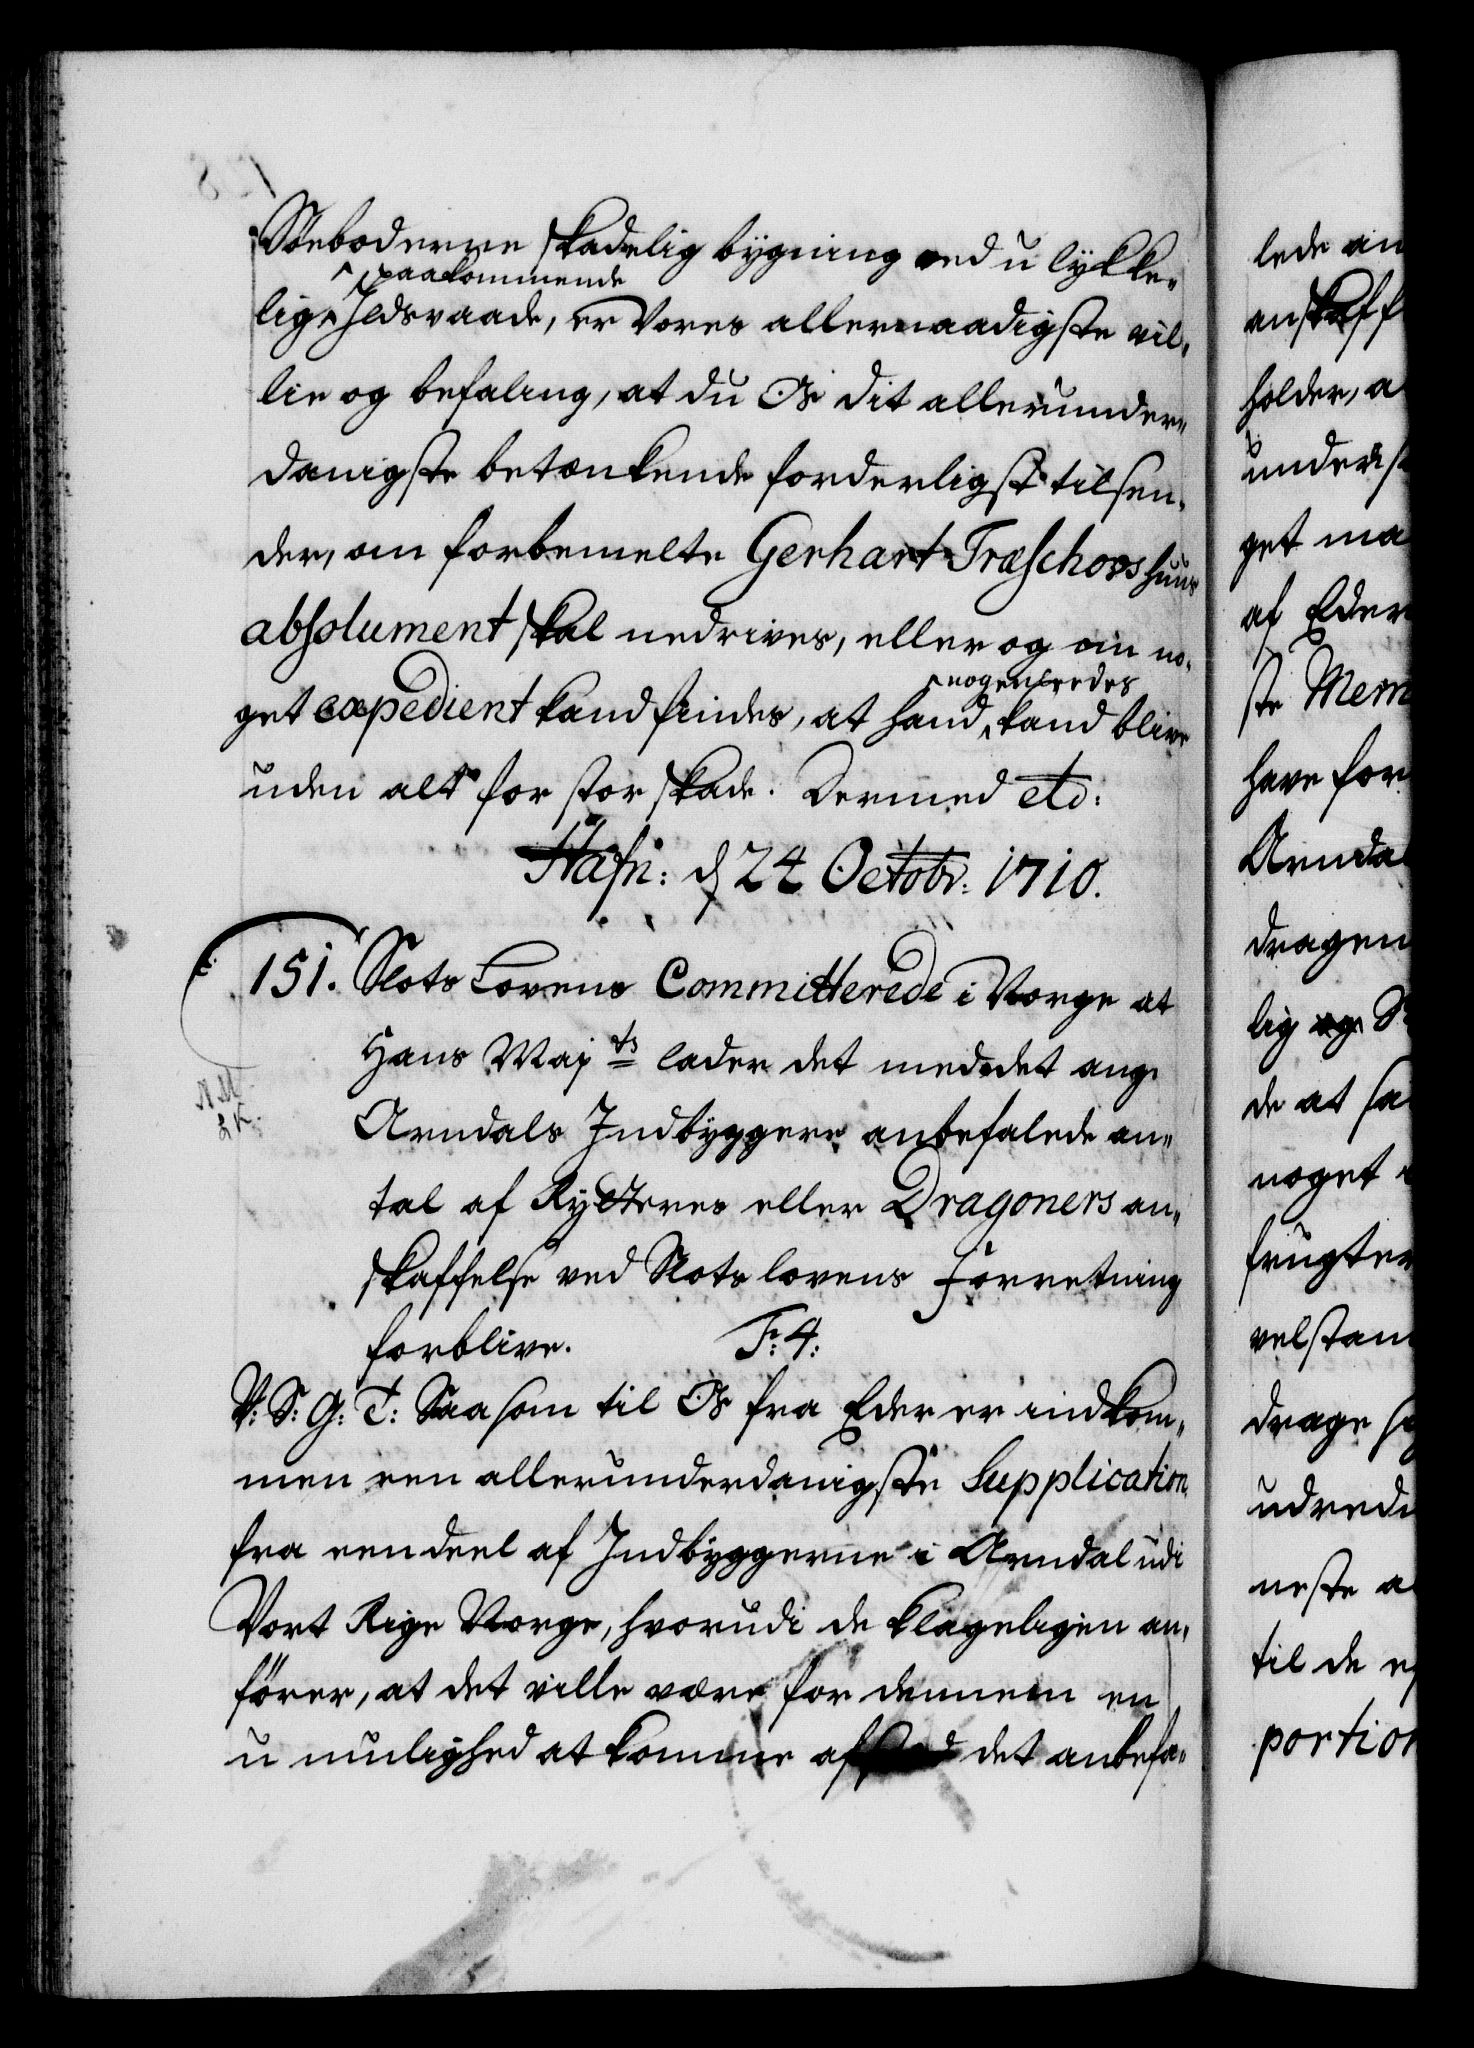 Söeboderne skadelig bygning ved ulykke-
paakommende
lig Ildsvaade, er Vores allernaadigste vil-
lie og befaling, at du Os dit allerunder-
danigste betænkende forderligst tilsen-
der, om forbemelte Gerhart Træschoes huus
absolument skal nedrives, eller og om no-
nogenledes
get expedient kand findes, at hand kand blive
uden alt for stor skade. Dermed etc:
Hafn: d 24 Octobr: 1710.
151. Slots Lovens Committerede i Norge at
Hans Maj ts lader det med det ang:
Arndals Indbyggere anbefalede an-
tal af Rytteres eller Dragoners an-
skaffelse ved Slotslovens Forretning
forblive. F: 4:
N M
L K.
V: S: G: T: Saasom til Os fra Eder er indkom-
men een allerunderdanigste Supplication
fra eendeel af Indbyggerne i Arndal udi
Vort Rige Norge, hvorudi de klageligen an-
förer, at det ville være for dennem en
umulighed at komme afsted det anbefa-
lede an
anskaff
holder, a
underst
get ma
af Eder
ste Mem
have for
Arnda
dragen
lig og S
de at ha
noget
frugter
velstan
drage
udrede
neste a
til de
portion